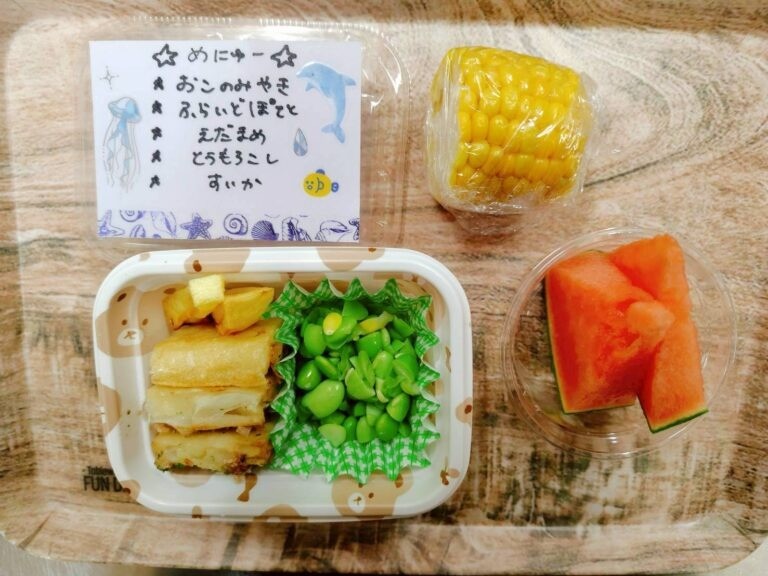 ☆ めにゅー ☆
★ おこのみやき
★ ふらいどぽてと
★ えだまめ
★ とうもろこし
★ すいか
FUN D